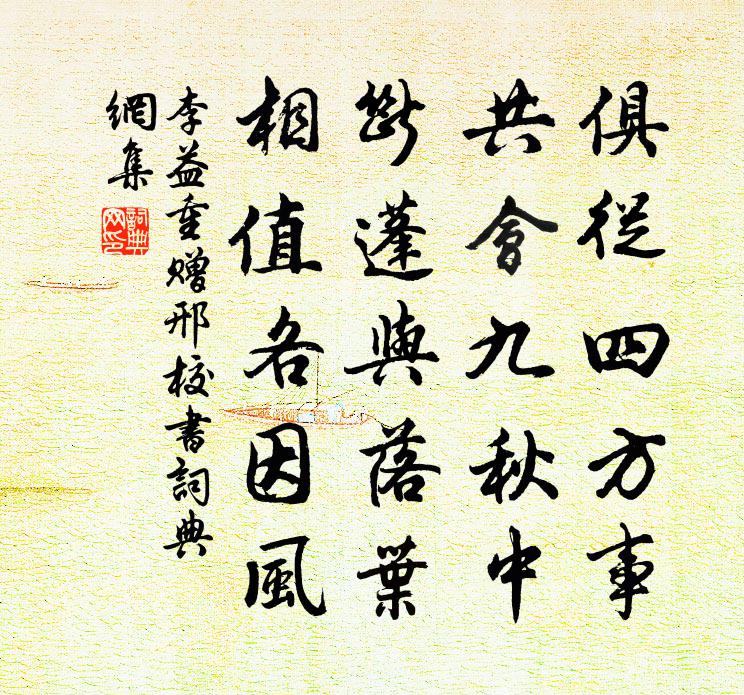 俱從四方事
共會九秋中
斷蓬與落葉
相值各因風
李益重贈邢校書詞典
網集
詞典
网印